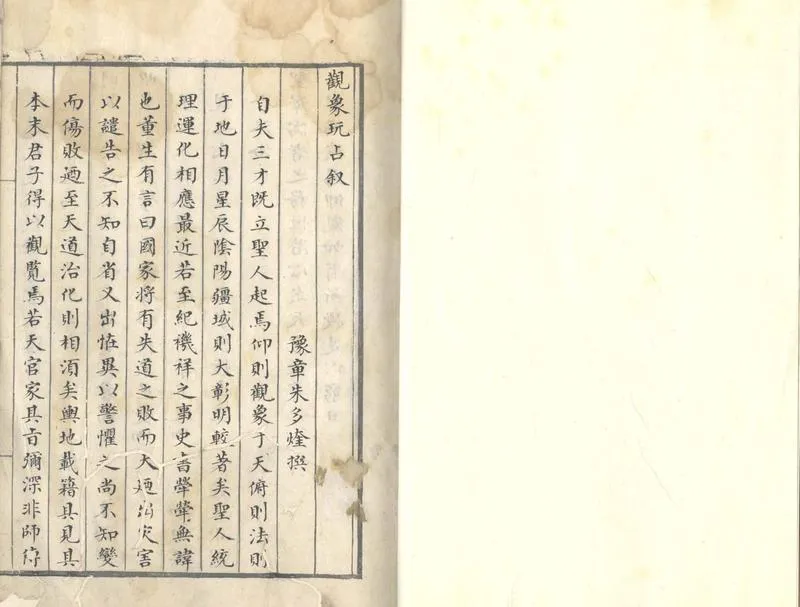 觀象玩占叙
豫章朱多煃撰
自夫三才既立聖人起焉仰則觀象于天俯則法則
于地日月星辰陰陽疆域則大彰明較著矣聖人統
理運化相應最近若至紀禨祥之事史書犖犖無諱
也董生有言曰國家將有失道之敗而天廼出灾害
以譴告之不知自省又出恠異以警懼之尚不知變
而傷敗廼至天道治化則相湏矣輿地載籍具見其
本末君子得以觀覧焉若天官家具㫖彌深非師傳